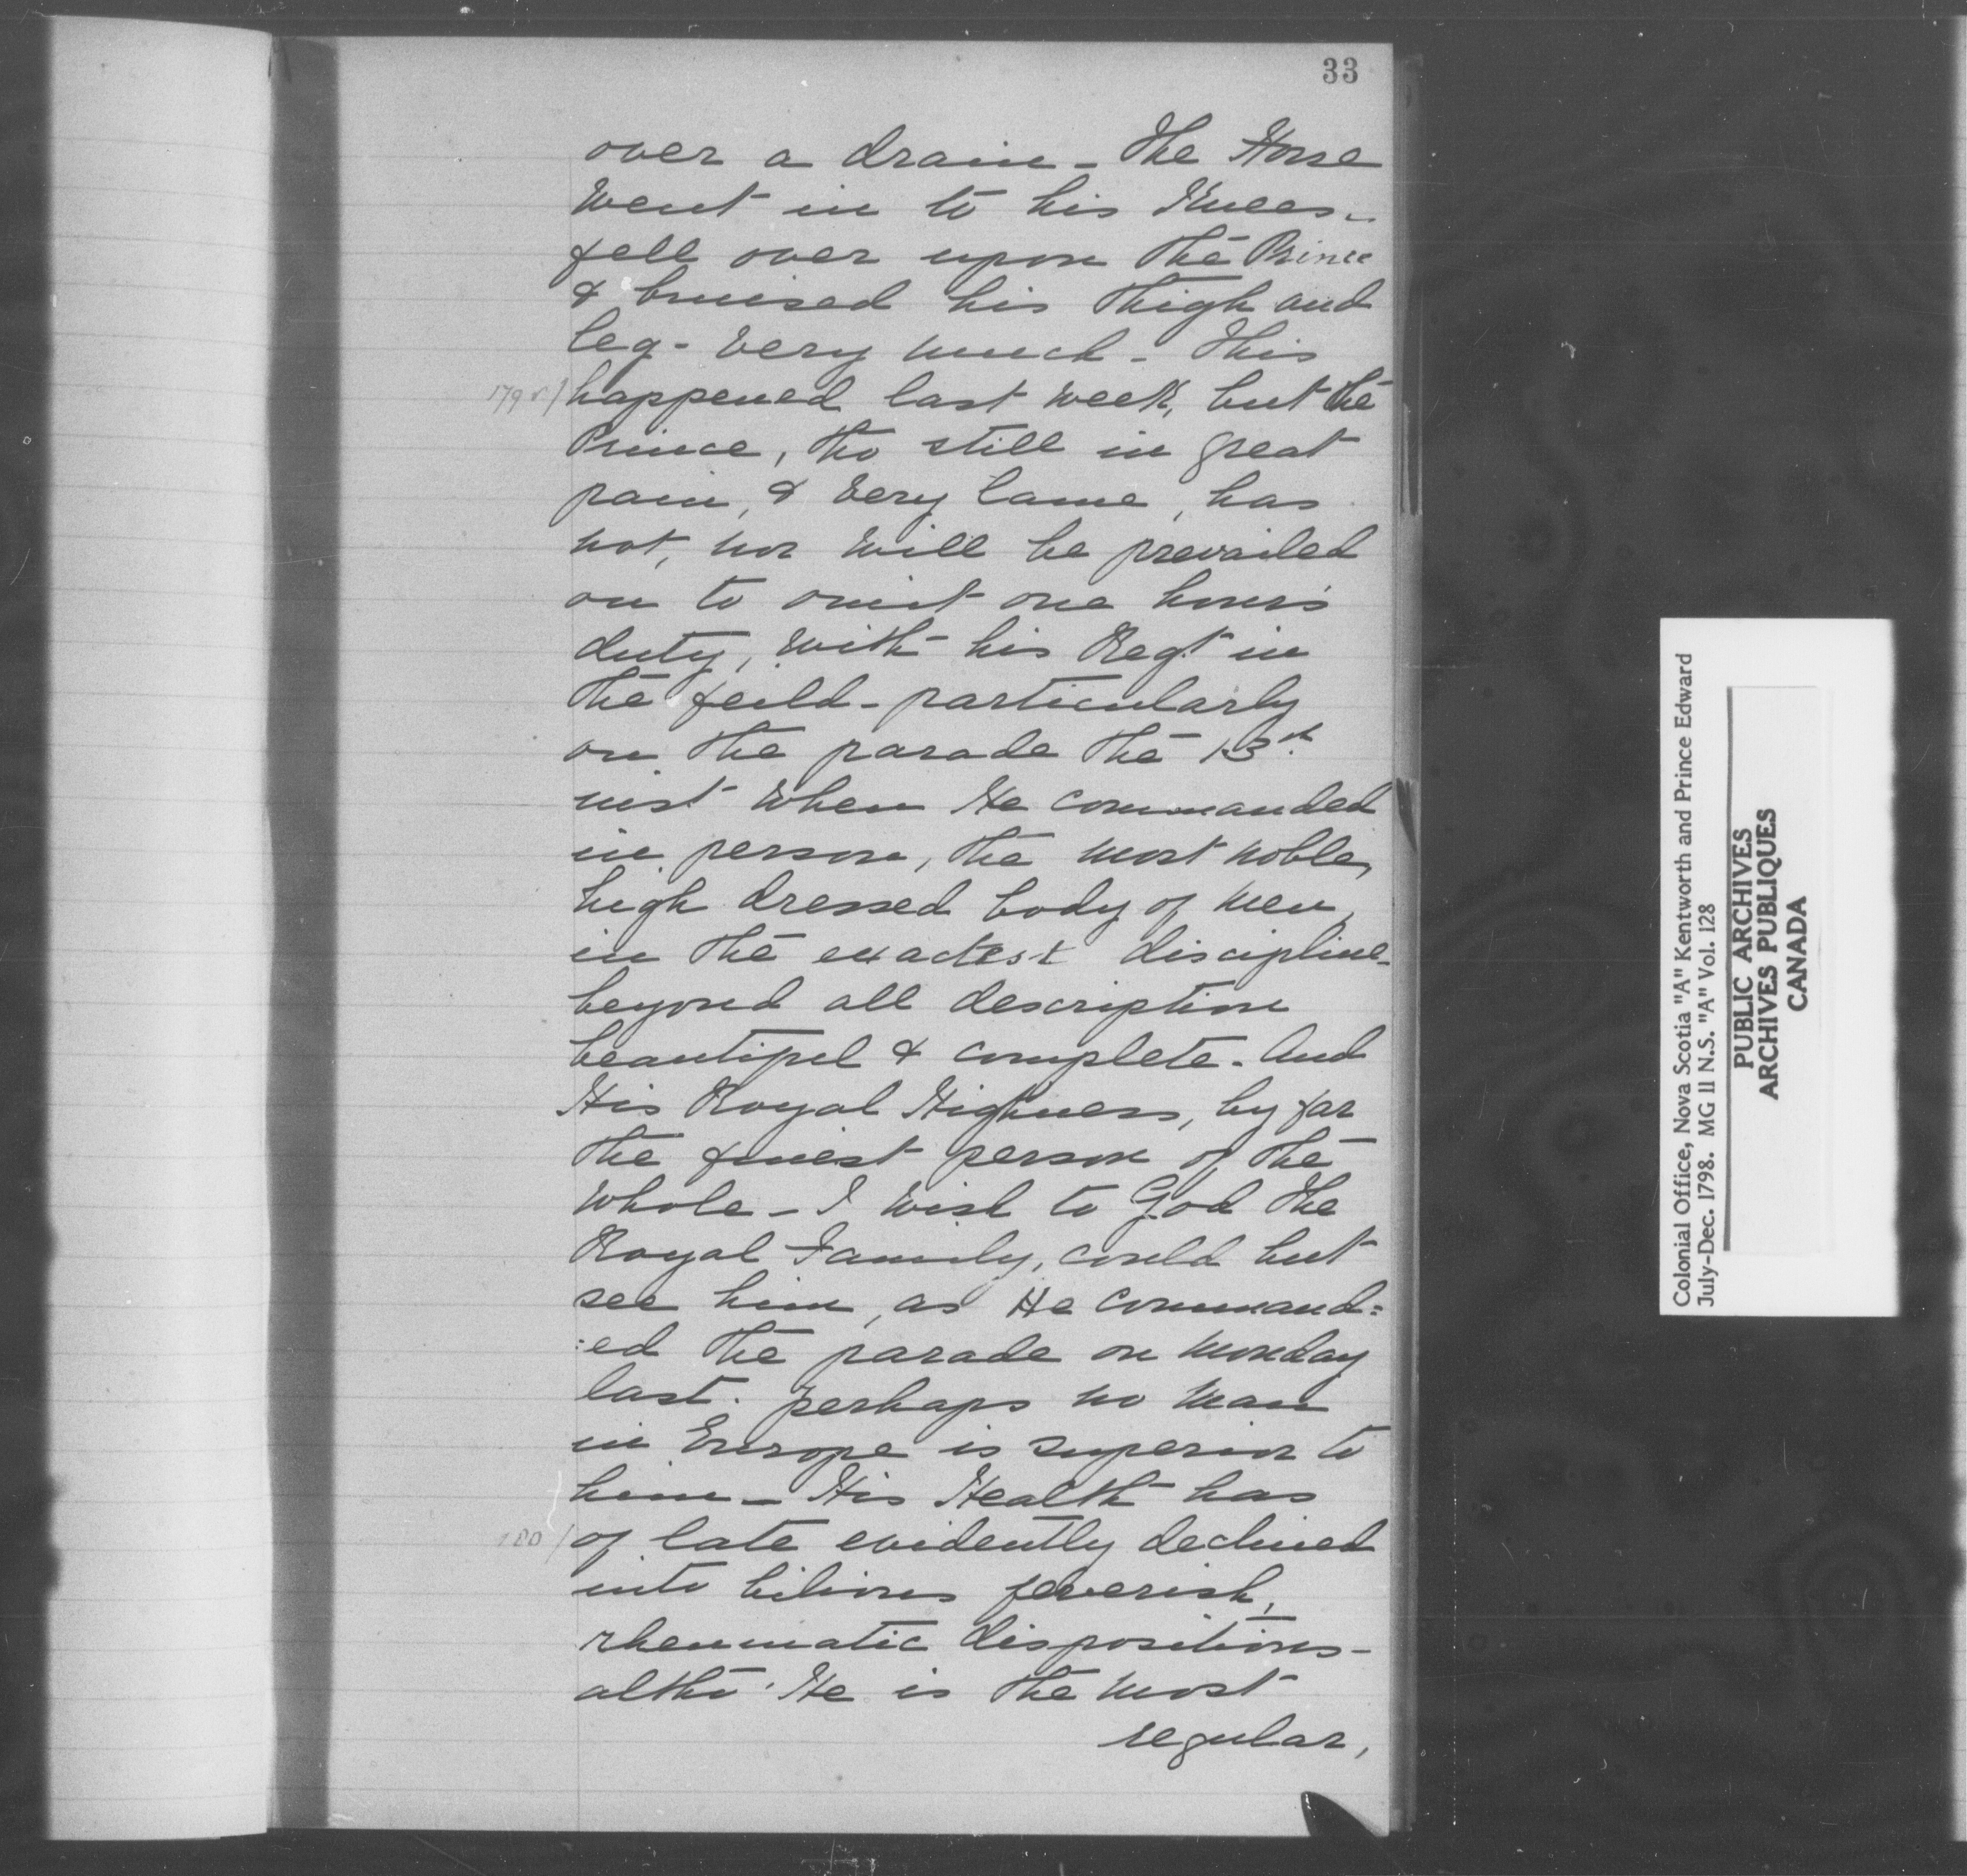 33
over a drain - The Horse
went in to his Knees -
fell over upon the Prince
& bruised his thigh and
leg - very much - This
happened last week, but the
Prince, tho still in great
pain, & very lame, has
not, nor will be prevailed
on to omit one hour's
duty, with his Regt in
the feild - particularly
on the parade the 13th
inst when He commanded
in person, the most noble,
high dressed body of men,
in the exactest discipline -
beyond all description
beautiful & complete. And
His Royal Highness, by far
the finest person of the
whole - I wish to God the
Royal Family, could but
see him, as He command:
:ed the parade on monday
last. perhaps no man
in Europe is superior to
him - His Health has
180/ of late evidently declined
into bilious feverish,
rheumatic dispositions -
altho' He is the most
regular,
Colonial Office, Nova Scotia "A" Kentworth and Prince Edward
July-Dec. 1798. MG 11 N.S. "A" Vol. 128
PUBLIC ARCHIVES
ARCHIVES PUBLIQUES
CANADA